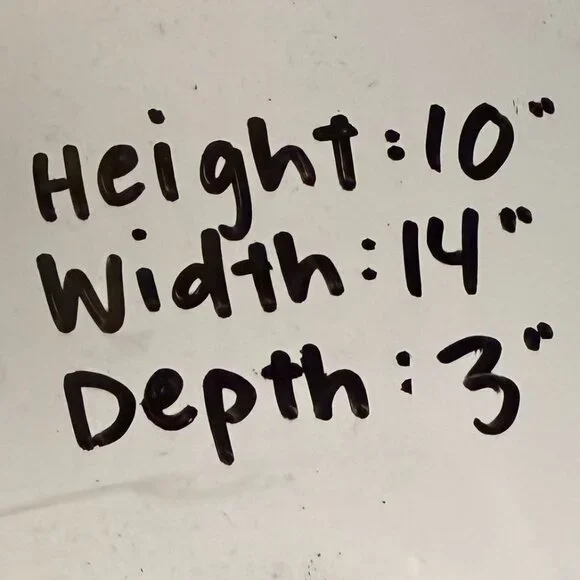 Height:10"
Width:14"
Depth:3"